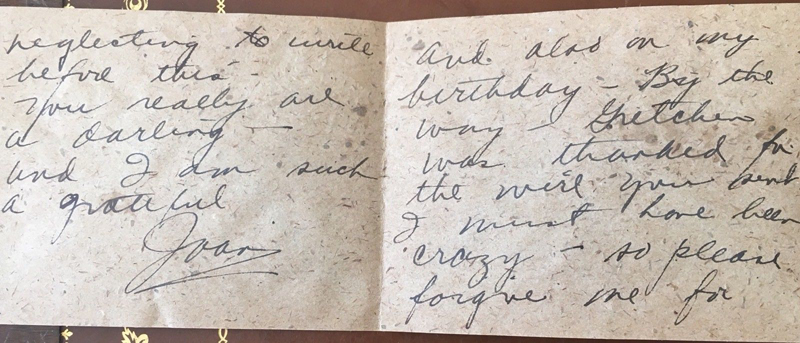 and also on my
birthday — By the
way — Gretchen
was thanked for
the wire you sent
I must have been
crazy — so please
forgive me for
neglecting to write
before this —
You really are
a darling —
and I am such
a grateful
Joan